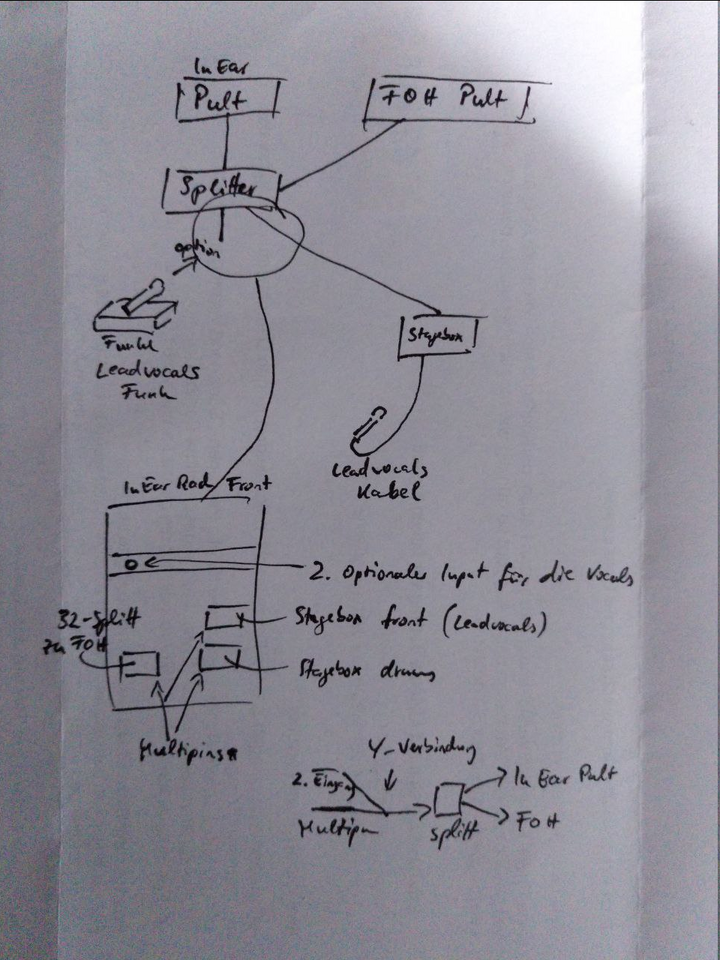 InEar
Pult
FOH Pult
Splitter
option
Funk
Leadvocals
Funk
Stagebox
Leadvocals
Kabel
InEar Rack Front
2. Optionaler Input für die Vocals
32-Splitt
zu FOH
Stagebox front (Leadvocals)
Stagebox drums
Multipins
Y-Verbindung
2. Eingang
Multipin
splitt
In Ear Pult
FOH